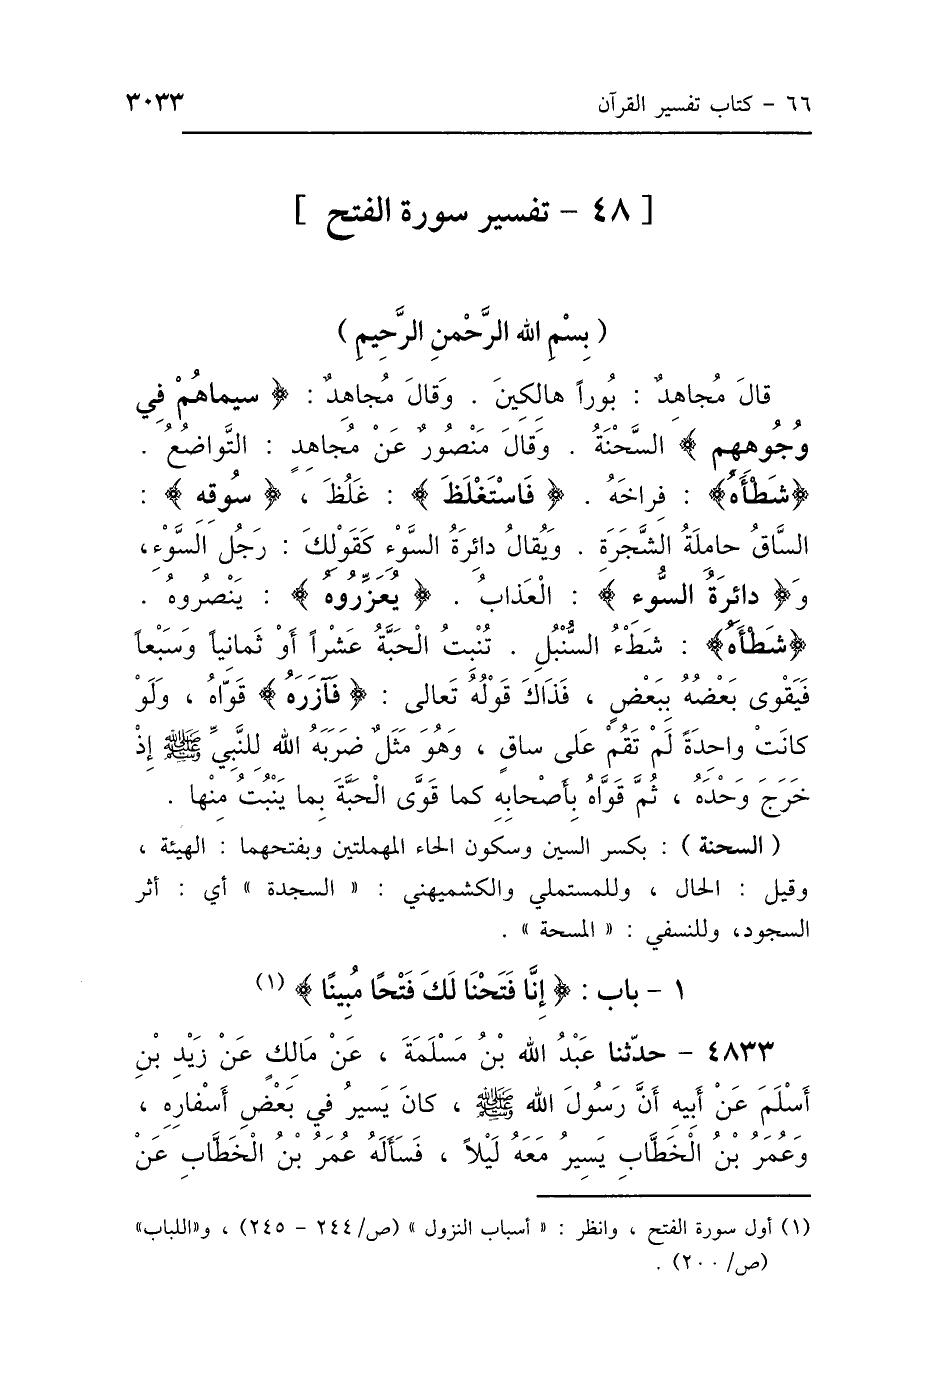 ٦٦ - كتاب تفسير القرآن ٣٠٣٣
[ ٤٨ - تفسير سورة الفتح ]
( بِسْمِ الله الرَّحْمنِ الرَّحِيمِ )
قالَ مُجاهِدٌ : بُوراً هالِكِينَ . وَقالَ مُجاهِدٌ : ﴿ سيماهُمْ في
وُجُوههِم ﴾ السَّحْنَةُ . وَقالَ مَنْصُورٌ عَنْ مُجاهِدٍ : التَّواضُعُ .
﴿شَطْأَهُ﴾ : فِراخَهُ . ﴿ فَاسْتَغْلَظَ ﴾ : غَلُظَ ، ﴿ سُوقِهِ ﴾ :
السَّاقُ حامِلَةُ الشَّجَرَةِ . وَيُقالُ دائِرَةُ السَّوْءِ كَقَوْلِكَ : رَجُلُ السَّوْءِ،
وَ﴿ دائرَةُ السُّوءِ ﴾ : الْعَذابُ . ﴿ يُعَزِّرُوهُ ﴾ : يَنْصُروهُ .
﴿شَطْأَهُ﴾ : شَطْءُ السُّنْبُلِ . تُنْبِتُ الْحَبَّةُ عَشْراً أَوْ ثَمانِياً وَسَبْعاً
فَيَقْوى بَعْضُهُ بِبَعْضٍ ، فَذَاكَ قَوْلُهُ تَعالى : ﴿ فَآزَرَهُ ﴾ قَوّاهُ ، وَلَوْ
كانَتْ واحِدَةً لَمْ تَقُمْ عَلى ساقٍ ، وَهُوَ مَثَلٌ ضَرَبَهُ الله لِلنَّبِيِّ ﷺ إِذْ
خَرَجَ وَحْدَهُ ، ثُمَّ قَوَّاهُ بِأَصْحابِهِ كما قَوَّى الْحَبَّةَ بِما يَنْبُتُ مِنْها .
( السحنة ) : بكسر السين وسكون الحاء المهملتين وبفتحهما : الهيئة ،
وقيل : الحال ، وللمستملي والكشميهني : « السجدة » أي : أثر
السجود، وللنسفي : « المسحة » .
١ - باب : ﴿ إِنَّا فَتَحْنَا لَكَ فَتْحًا مُبِينًا ﴾ (١)
٤٨٣٣ - حدّثنا عَبْدُ الله بْنُ مَسْلَمَةَ ، عَنْ مَالِكٍ عَنْ زَيْدِ بْنِ
أَسْلَمَ عَنْ أَبِيهِ أَنَّ رَسُولَ الله ﷺ ، كانَ يَسِيرُ في بَعْضِ أَسْفارِهِ ،
وَعُمَرُ بْنُ الْخَطَّابِ يَسِيرُ مَعَهُ لَيْلاً ، فَسَأَلَهُ عُمَرُ بْنُ الْخَطَّابِ عَنْ
(١) أول سورة الفتح ، وانظر : « أسباب النزول » (ص/ ٢٤٤ - ٢٤٥) ، و«اللباب»
(ص/ ٢٠٠) .